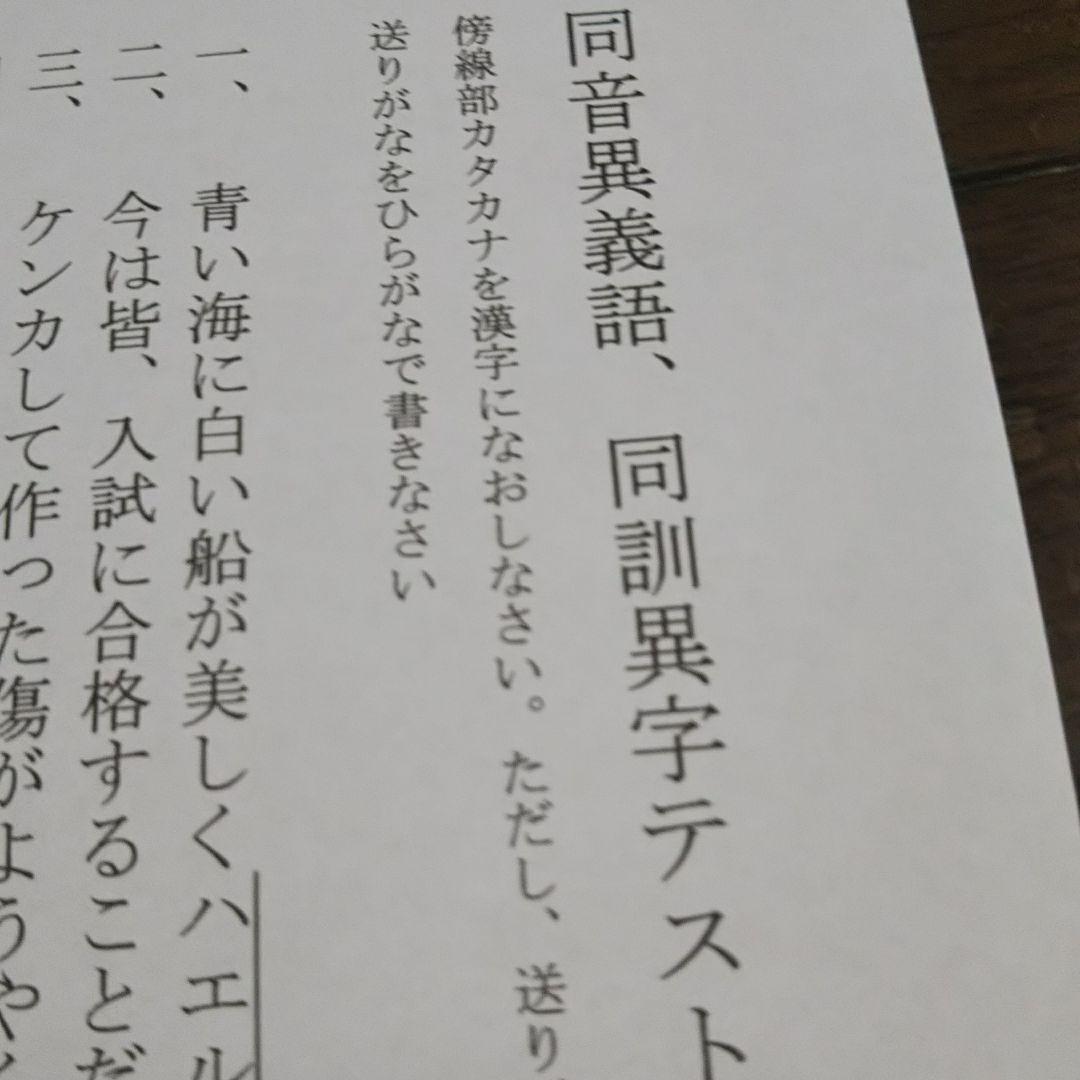 同音異義語、同訓異字テスト
傍線部カタカナを漢字になおしなさい。ただし、送り
送りがなをひらがなで書きなさい
一、青い海に白い船が美しくハエル
二、今は皆、入試に合格することだ
三、ケンカして作った傷がようや